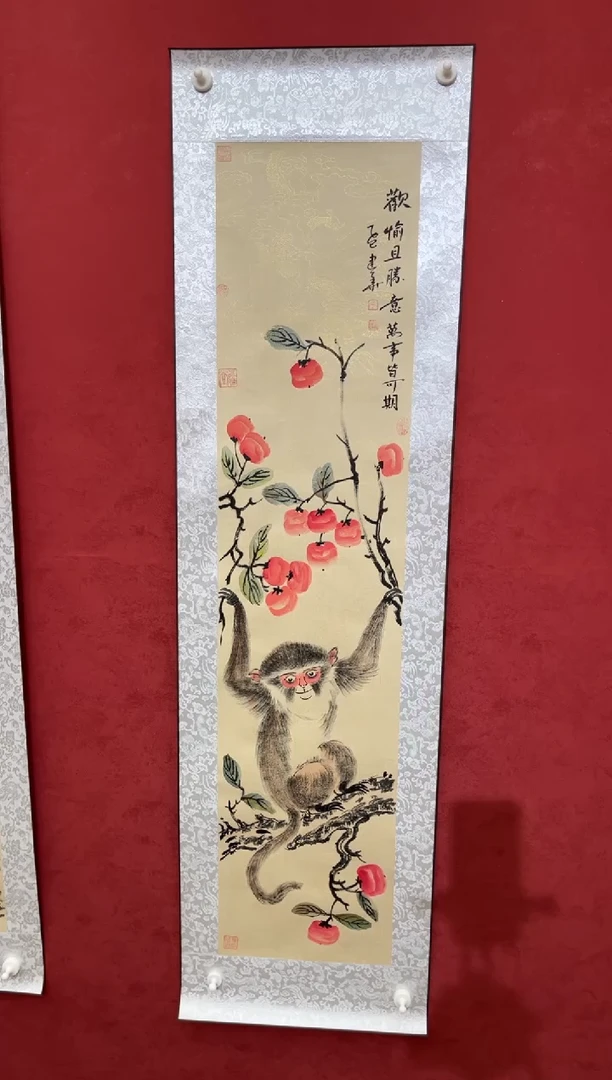 歡愉且勝意萬事皆可期
建華